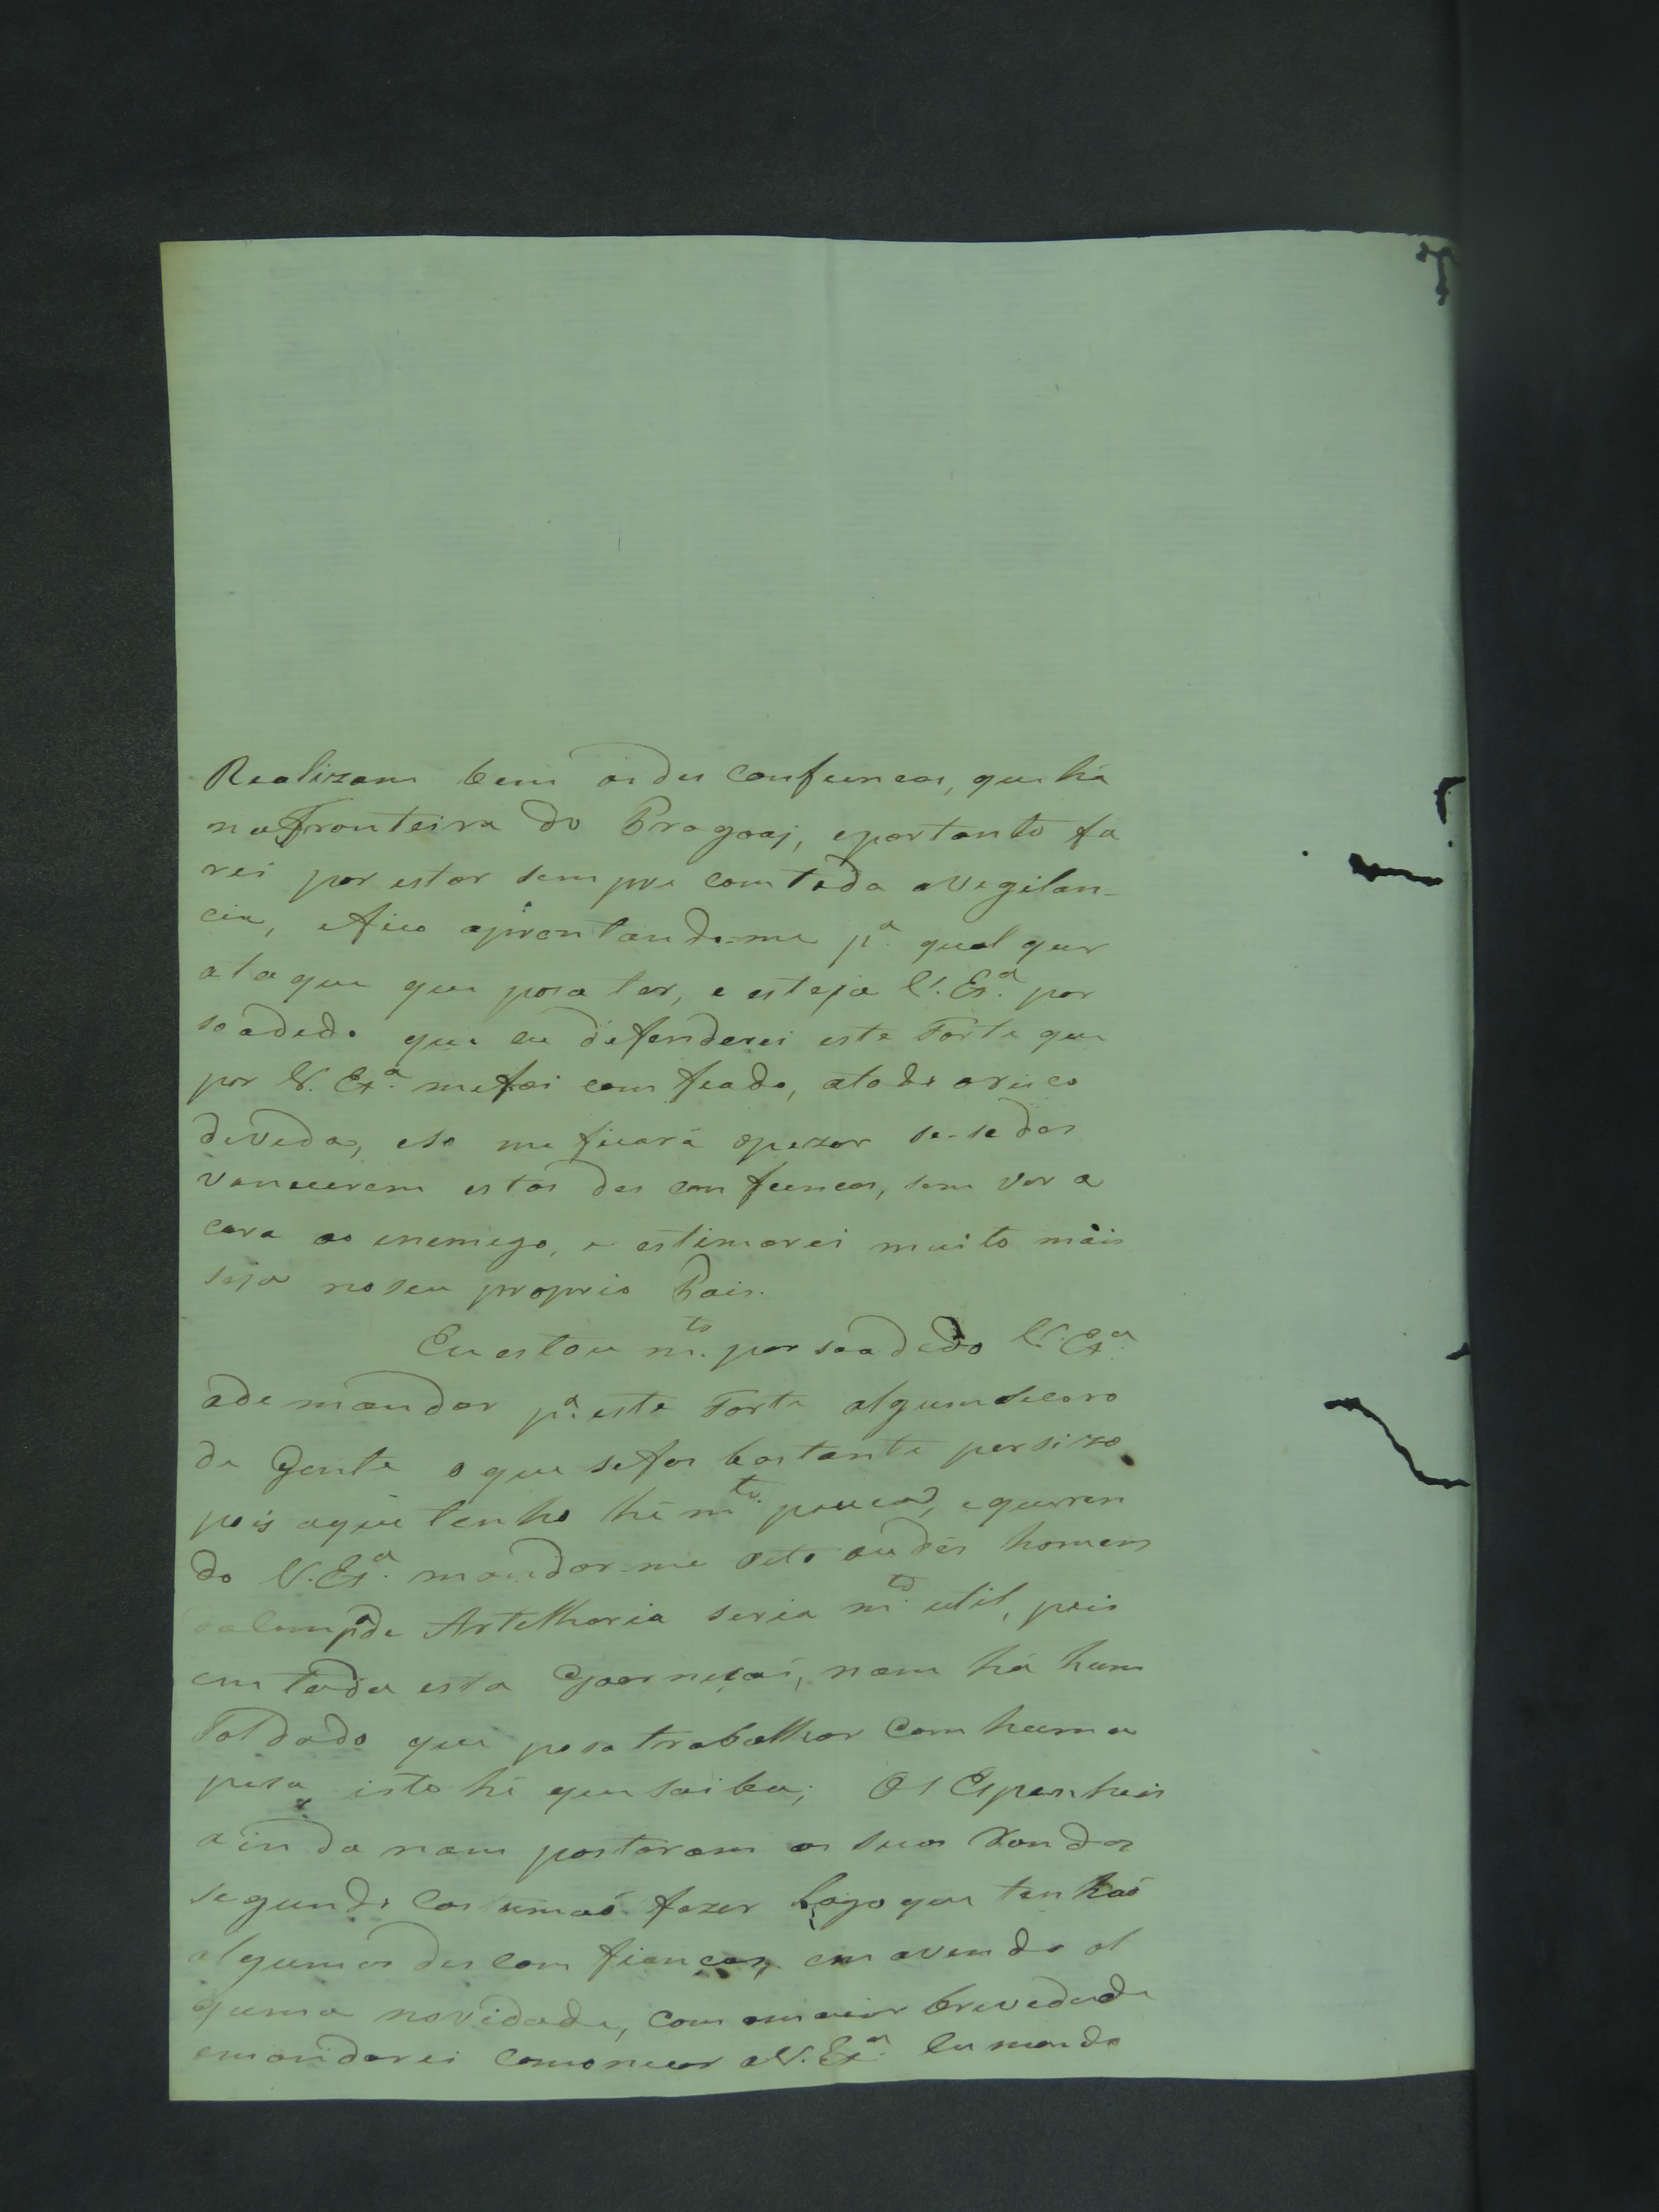 Realizam bem as des confiencas, que há
na Fronteira do Pragoaj, eportanto fa
rei por estar sempre com toda a Vegilan-
cia, efico aprontandome pª. qual quer
ataque que posa ter, e esteja V. Exª. por
soadedo que eu defenderei este Forte que
por V. Exª. mefoi com feado, atodo orisco
deveda, eso me ficará opezar se-se des
vanecerem estas des com fiencas, sem ver a
cara ao enemego, e estimarei muito máis
seja noseu proprio Pais.
Eu estou mto. por soadedo V. Exª.
ade mandar pª. este Forte algum secoro
de Gente o que sefas bastante persizo
pois aque tenho hé mto. pouca, equeren
do V. Exª. mandar-me oito ou dés homens
pª. de Artelharia seria mto. util, pois
em toda esta Goarneçaó, nam há hum
Soldado que posa trabalhar Com huma
pesa isto hé que saiba; Os Espanhois
ainda nam postaram as suas Rondas
segundo Costumaó fazer logo que tenhaó
algumas des com fiancas, em avendo al
guma novidade, com amaior brevedade
emandarei comonicar aV. Exª. Eu mando